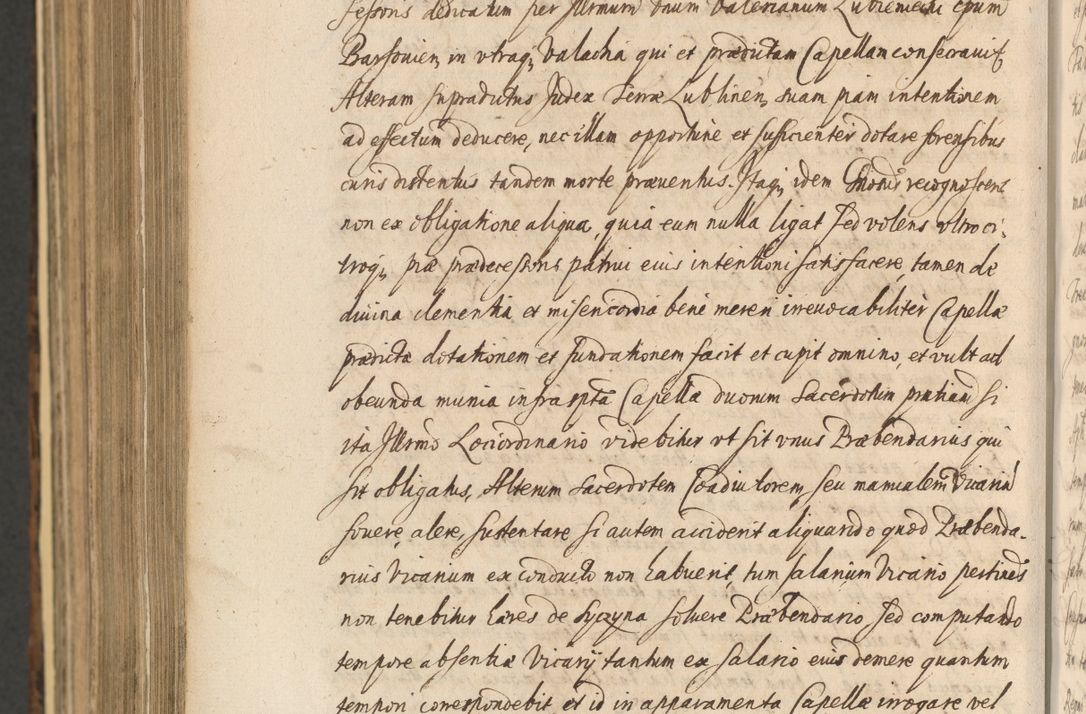 fessoris dedicatum per Illrmum Dnum Valerianum Lubieniecki Epum
Barsovien, in utraq, Valachia qui et prædictam Capellam consecravit
Alteram supradictus Judex Terræ Lublinen, suam piam intentionem
ad effectum deducere, nec illam opportune et sufficienter dotare forensibus
curis distentus tandem morte præventus. Itaq, idem Gnosus recognoscens
non ex obligatione aliqua, quia eum nulla ligat sed volens ultro ci,
troq, piæ prædecessoris patrui eius intentioni satisfacere, tamen de
divina clementia et misericordia bene mereri irrevocabiliter Capellæ
prædictæ dotationem et fundationem facit et cupit omnino, et vult ad
obeunda munia infrasptæ Capellæ duorum Sacerdotum pntiam si
ita Illrmo Loci ordinario videbitur ut sit unus Præbendarius qui
sit obligatus, Alterum Sacerdotem Coadiutorem, seu manualem Vicarium
fovere, alere, sustentare si autem acciderit aliquando quod Præbenda-
rius Vicarium ex conducto non habuerit, tum salarium Vicario pertinens
non tenebitur hæres de Syczyna solvere Præbendario, sed computando
tempore absentiæ Vicarij tantum ex salario eius demere quantum
tempori correspondebit et id in apparamenta Capellæ irrogare vel